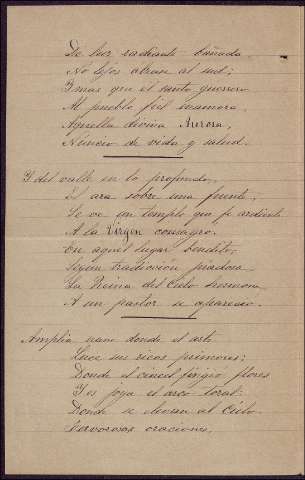 De luz radiante bañada
No lejos alzase al sul;
Y mas que el santo
Al pueblo fiel enamora
Aquella divina Aurora,
Núncio de vida y salud.
Y del valle en lo profundo,
Es ara sobre una fuente,
Se ve un templo que fe ardiente
A la Virgen consagro.
En aquel lugar bendito,
Segun tradicion piadosa
La Reina del Cielo hermosa
A un pastor se aparecio.
Amplia nave donde el arte
Luce sus ricos primores;
Donde el cincel fingió flores
Y es joya el arco toral:
Donde se elevan al Cielo
Fervorosas oraciones,